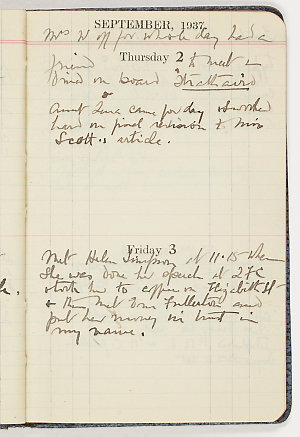 SEPTEMBER, 1937
Mrs W off for whole day had a
friend to meet in
Thursday 2
bond on board Strathaird
Aunt Lena came for day & worked
hard on final revision to Miss
Scott's article.
Friday 3
Met Helen Simpson at 11.15 when
she was done her speech at 2FC
took her to coffee in Elizabeth St
& then met Una Fullerton and
put her money in trust in
my name.